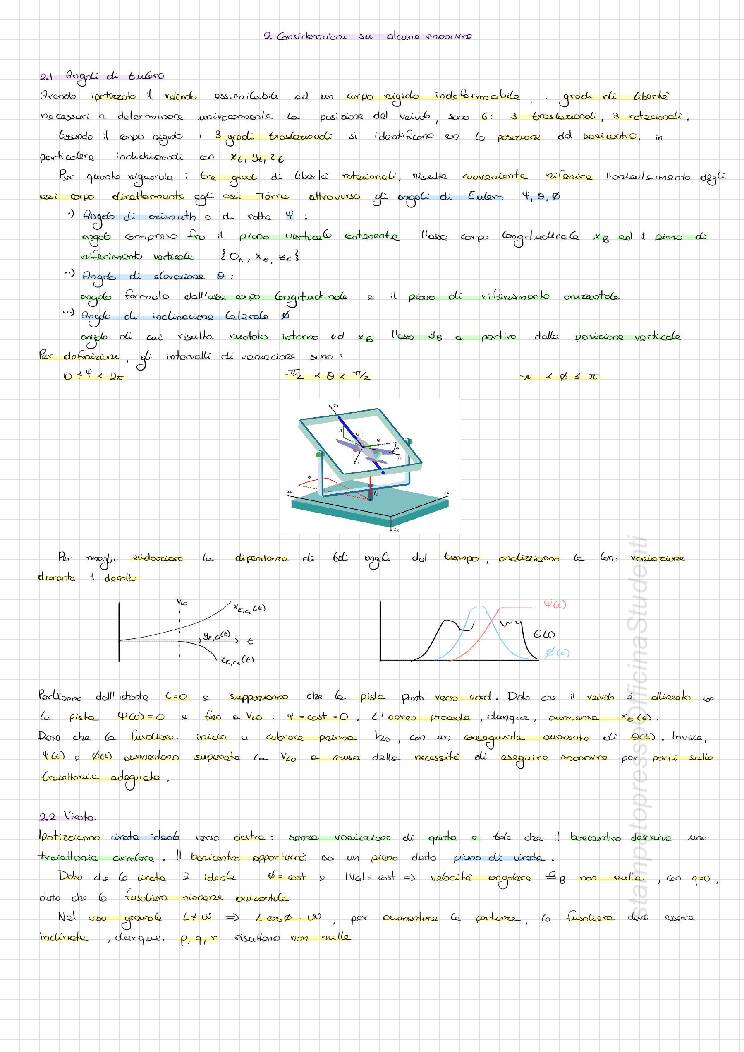 2. Considerazioni su alcune manovre
2.1 Angoli di Eulero
Avendo ipotizzato il veicolo assimilabile ad un corpo rigido indeformabile, i gradi di libertà
necessari a determinare univocamente la posizione del veicolo, sono 6: 3 traslazionali, 3 rotazionali.
Essendo il corpo rigido i 3 gradi traslazionali si identificano con la posizione del baricentro, in
particolare indichiamoli con xE, yE, zE
Per quanto riguarda i tre gradi di libertà rotazionali, risulta conveniente riferire l'orientamento degli
assi corpo direttamente agli assi Terra attraverso gli angoli di Eulero Ψ, θ, Φ
·) Angolo di azimuth o di rotta Ψ:
angolo compreso fra il piano verticale contenente l'asse corpo longitudinale xB ed il piano di
riferimento verticale
··) Angolo di elevazione θ:
angolo formato dall'asse corpo longitudinale e il piano di riferimento orizzontale
···) Angolo di inclinazione laterale Φ
angolo di cui risulta ruotato intorno ad xB l'asse yB a partire dalla posizione verticale
Per definizione, gli intervalli di variazione sono:
0 ≤ Ψ < 2π -π/2 ≤ θ ≤ π/2 -π < Φ ≤ π
Per meglio evidenziare la dipendenza di tali angoli dal tempo, analizziamo la loro variazione
durante il decollo
VLO xE,G(t) yE,G(t) t zE,G(t)
Ψ(t) θ(t) Φ(t)
Partiamo dall'istante t=0 e supponiamo che la pista punti verso nord. Dato che il veicolo è allineato con
la pista Ψ(t)=0 e fino a VLO. Ψ=cost=0. L'aereo procede, dunque, aumenta xE(t).
Dopo che la fusoliera inizia a cabrare prima, con un conseguente aumento di θ(t). Invece,
Ψ(t) e Φ(t) aumentano superata la VLO a causa della necessità di eseguire manovre per porsi sulla
traiettoria adeguata.
2.2 Virata
Ipotizziamo virata ideale verso destra: senza variazione di quota e tale che il baricentro descriva una
traiettoria circolare. Il baricentro apparterrà ad un piano detto piano di virata.
Dato che la virata è ideale Φ=cost e |VG|=cost => velocità angolare ΩB non nulla, con q=0,
dato che la fusoliera rimane orizzontale
Nel caso generale L≠W => LcosΦ=W, per aumentare la portanza, la fusoliera deve essere
inclinata, dunque p, q, r risultano non nulle
stampatopressoOfficinaStudenti